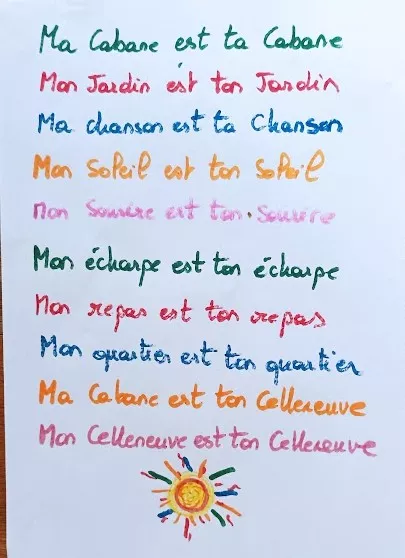 Ma Cabane est ta Cabane
Mon Jardin est ton Jardin
Ma chanson est ta Chanson
Mon Soleil est ton Soleil
Mon Sourire est ton Sourire
Mon écharpe est ton écharpe
Mon repas est ton repas
Mon quartier est ton quartier
Ma Cabane est ton Celleneuve
Mon Celleneuve est ton Celleneuve